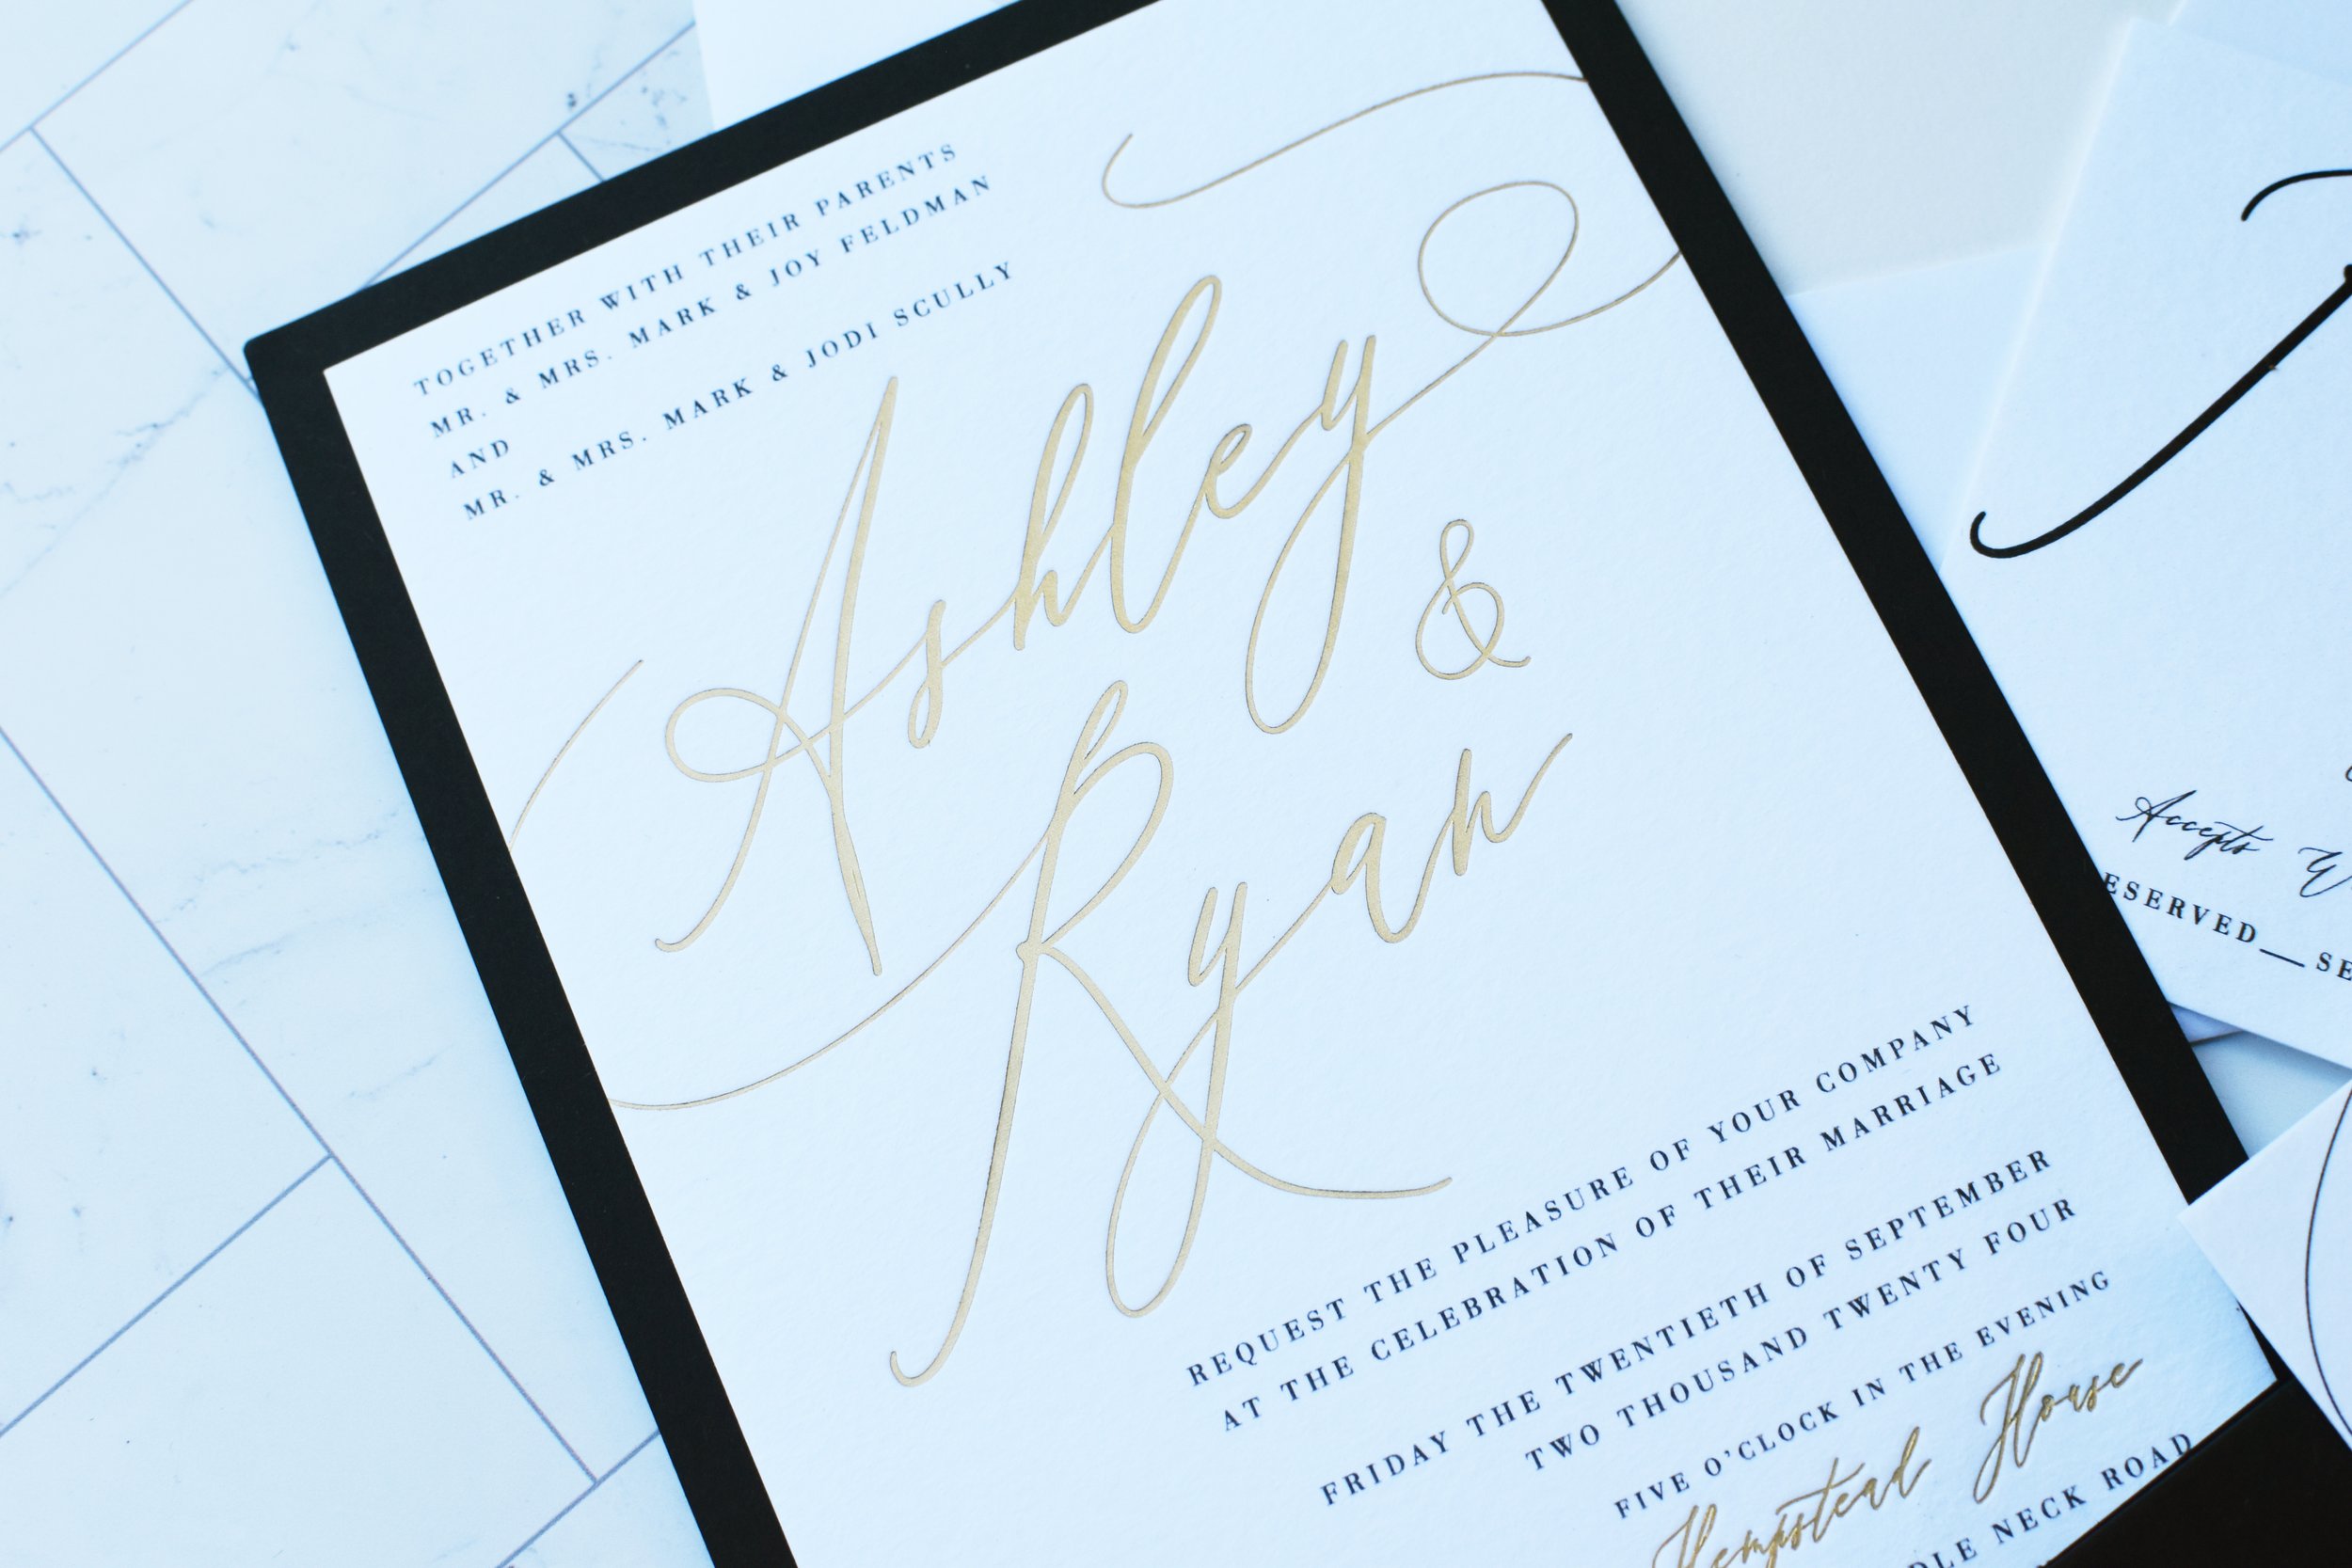 TOGETHER WITH THEIR PARENTS
MR. & MRS. MARK & JOY FELDMAN
AND
MR. & MRS. MARK & JODI SCULLY
Ashley
&
Ryan
REQUEST THE PLEASURE OF YOUR COMPANY
AT THE CELEBRATION OF THEIR MARRIAGE
FRIDAY THE TWENTIETH OF SEPTEMBER
TWO THOUSAND TWENTY FOUR
FIVE O'CLOCK IN THE EVENING
Hempstead House
NECK ROAD
Accepts
ESERVED__SE